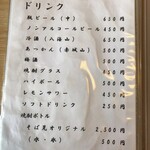 ドリンク
瓶ビール（中） 650円
ノンアルコールビール 450円
冷酒（八海山） 480円
あつかん（赤城山） 500円
梅酒 500円
焼酎グラス 500円
ハイボール 500円
レモンサワー 500円
ソフトドリンク 250円
焼酎ボトル
そば晃オリジナル 2,500円
（水・氷） 500円